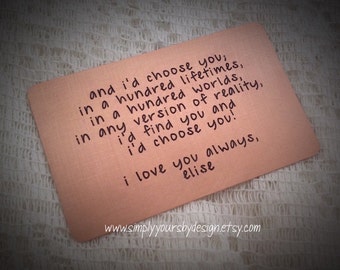 and i'd choose you,
in a hundred lifetimes,
in a hundred worlds,
in any version of reality,
i'd find you and
i'd choose you!
i love you always,
elise
www.simplyyoursbydesign.etsy.com